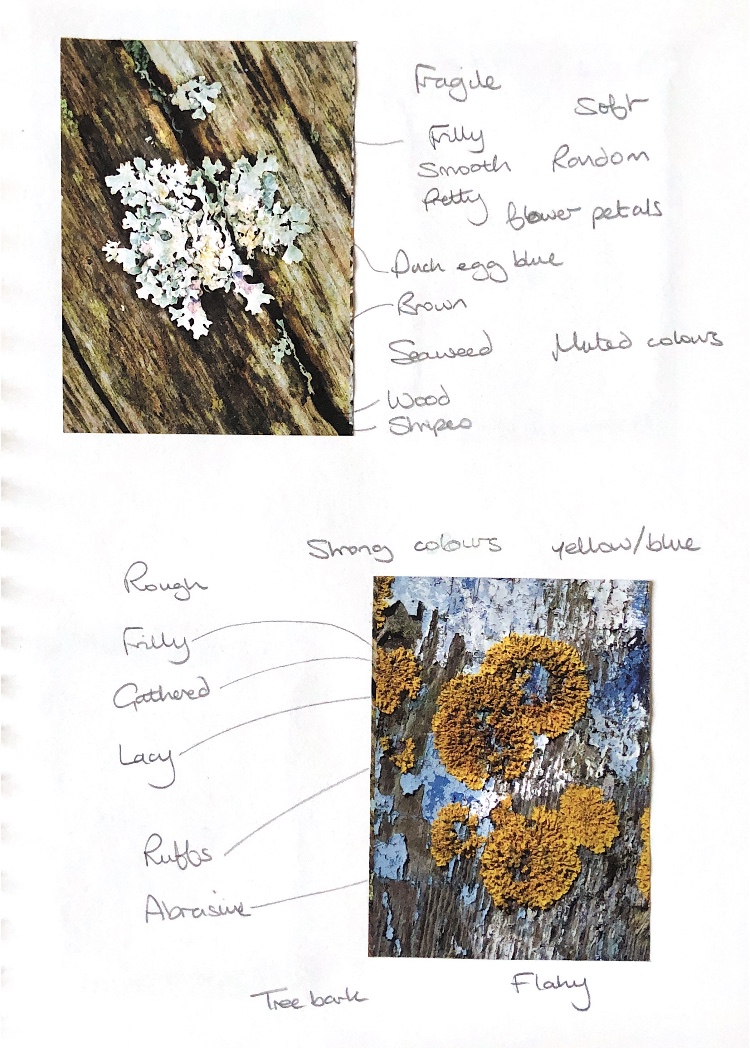 Fragile
Soft
Frilly
Smooth Random
Petty flower petals
Duck egg blue
Brown
Seaweed Muted colours
Wood
Stripes
Strong colours yellow/blue
Rough
Frilly
Gathered
Lacy
Ruffs
Abrasive
Flaky
Tree bark